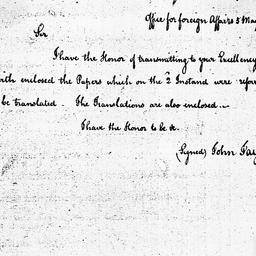 Office for foreign Affairs 5 May
Sir
I have the Honor of transmitting to your Excellency
enclosed the Papers which on the 2 Instand were
be translated. The Translations are also enclosed—
I have the Honor to be &.
(signed) John Jay